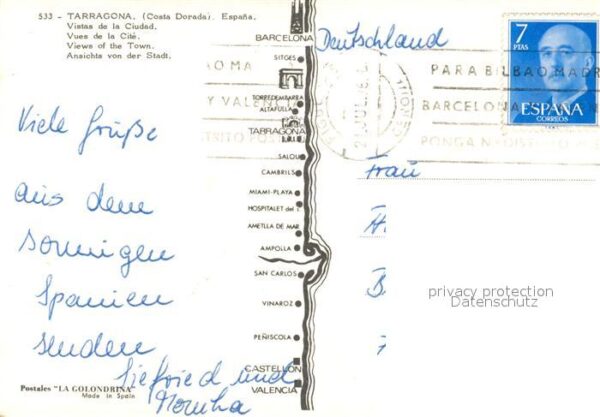 533 - TARRAGONA. (Costa Dorada). España.
Vistas de la Ciudad.
Vues de la Cité.
Views of the Town.
Ansichten von der Stadt.
Viele Grüße
aus dem
sonnigen
Spanien
senden
Siefried und
Postales "LA GOLONDRINA"
Made in Spain
BARCELONA
SITGES
TORREDEMBARRA
ALTAFULLA
TARRAGONA
SALOU
CAMBRILS
MIAMI-PLAYA
HOSPITALET del I.
AMETLLA DE MAR
AMPOLLA
SAN CARLOS
VINAROZ
PEÑISCOLA
CASTELLON
VALENCIA
Deutschland
PARA BILBAO MADR
BARCELONA
PONGA
7
PTAS
ESPAÑA
CORREOS
Frau
privacy protection
Datenschutz